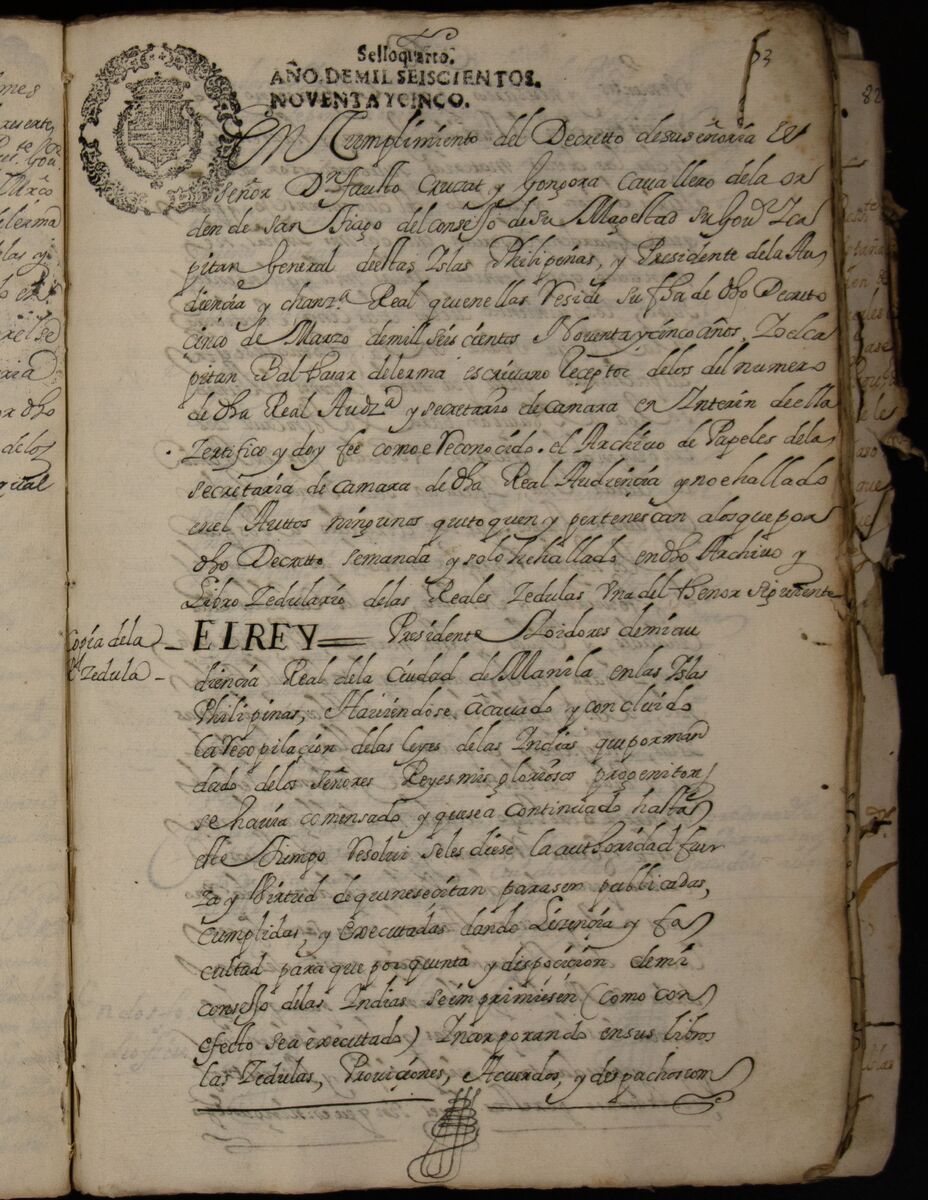 Sello quarto.
AÑO DE MIL SEISCIENTOS.
NOVENTA Y CINCO.
53
82
En Cumplimiento del Decretto desuseñoria el
señor Dn fausto Cruzat y Gongora Cavallero dela or
den de san Tiago del conseJo de su Magestad su Govor ZCa
pitan General destas Islas Philipinas, y Presidente dela Au
diencia y chanza Real quenellas Reside su fha de dho Decreto
cinco de Marzo demill seiscientos Noventa y cinco años. Yo el ca
pitan Balthasar delerma escrivano Receptor delos del numero
de dha Real Audza y secretario de camara en Interin de ella
Zertifico y doy fee como e Reconocido el Archivo de Papeles dela
secretaria de camara de dha Real Audiencia y no e hallado
enel Auttos ningunos quetoquen y pertenescan alosquepor
dho Decretto semanda y solo he hallado en dho Archivo y
Libro Zedulario delas Reales Zedulas Una del thenor siguiente
Copia dela
Rl Zedula
EL REY = Presidente Y oidores demi au
diencia Real dela Ciudad de Manila enlas Islas
Philipinas, Haviendose acavado y concluido
la Recopilacion delas leyes delas Indias que por man
dado delos señores Reyes mis gloriosos progenitors
se havia comensado y que se a continuado hasta
este Tiempo Resolvi seles diese la authoridad fuer
za y Virtud de que nesecitan para ser publicadas,
cumplidas, y Executadas dando Lizencia y fa
cultad para que por quenta y disposicion demi
conseJo delas Indias se imprimiesen (como con
efecto se a executado) Incorporando ensus libros
las Zedulas, Proviciones, Acuerdos, y despachos con